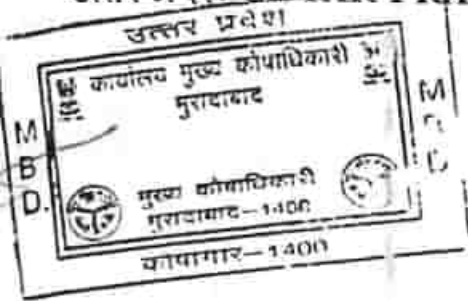 उत्तर प्रदेश
कार्यालय मुख्य कोषाधिकारी
मुरादाबाद
M
B
D.
M
मुख्य कोषाधिकारी
मुरादाबाद-1400
कोषागार-1400